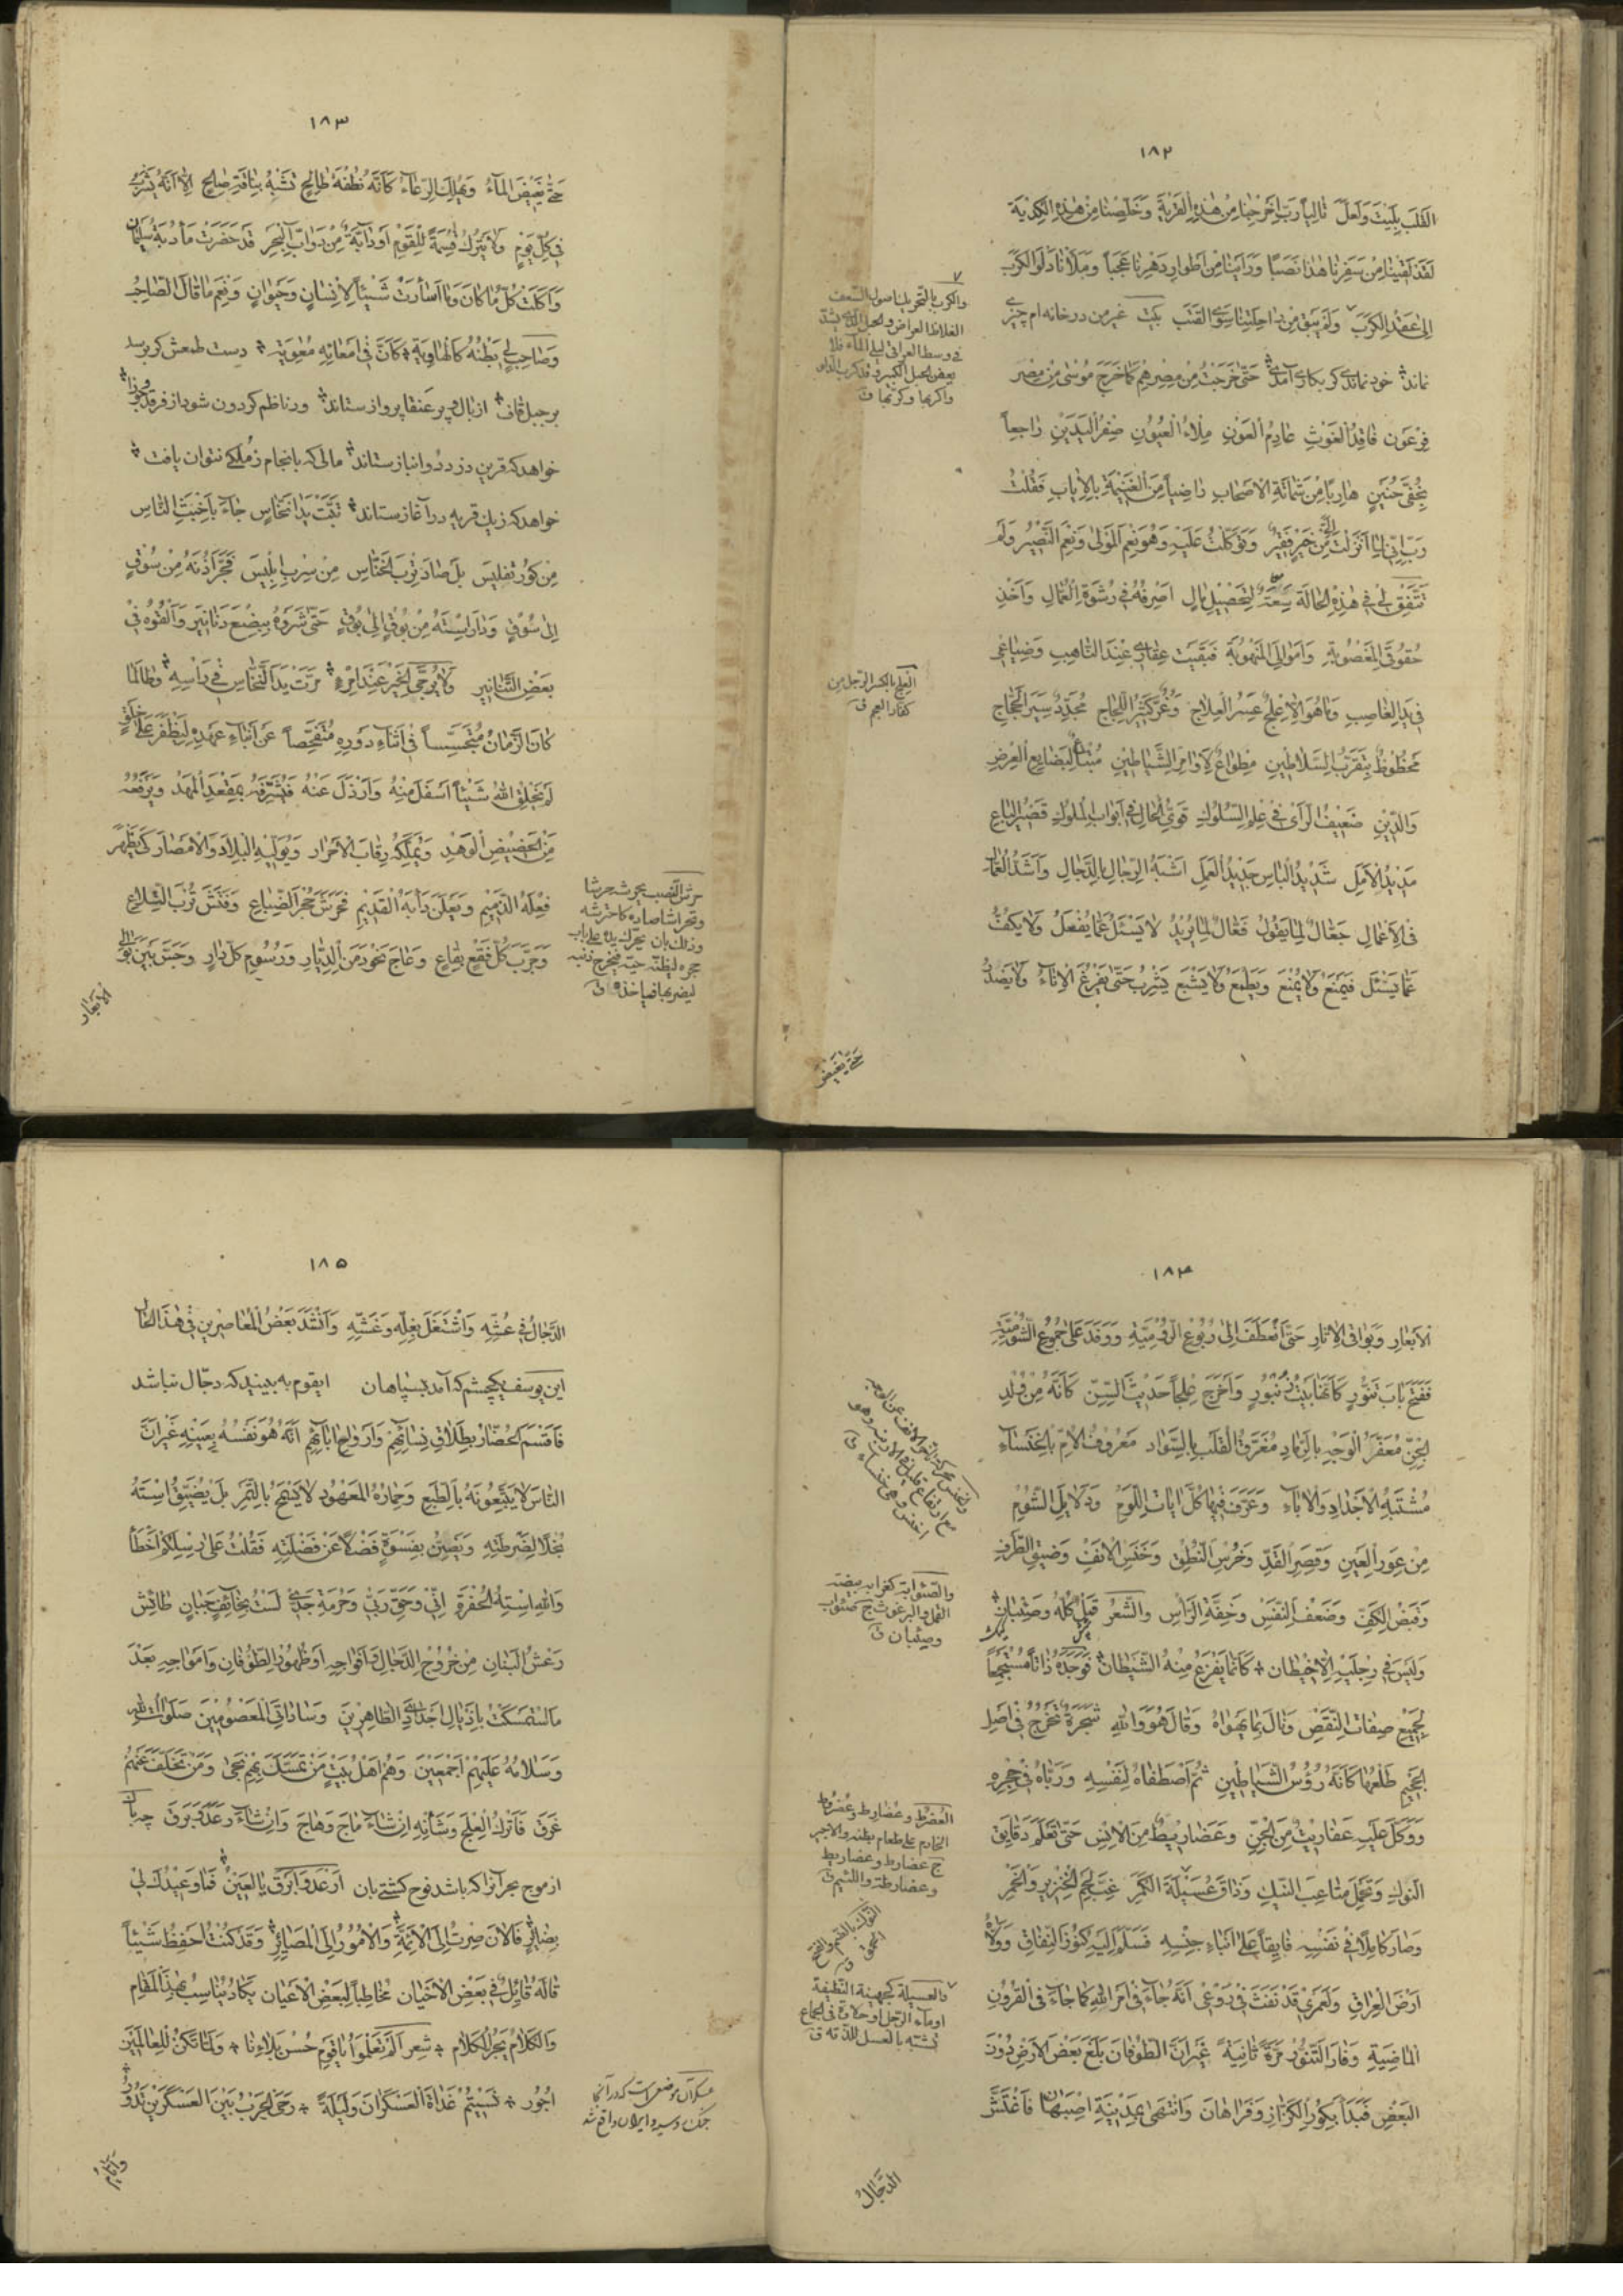 ١٨٢
القلب بليت ولعل تاليا رب اخرجنا من هذه القرية وخلصنا من هذه الكدية
لقد لقينا من سفرنا هذا نصبا وراينا من اطوار دهرنا عجبا وملأنا دلو الكرب
الى عقد الكرب ولم يبق من راحلتنا سوى القتب بيت غير من در خانه ام چيزى
نماند خود نماندى گر بكارى آمدى حتى خرجت من مصرهم كما خرج موسى من مصر
فرعون فاقد الغوث عادم العون ملاء العيون صفر اليدين راجعا
بخفى حنين هاربا من شماتة الاصحاب راضيا من الغنيمة بالاياب فقلت
رب انى لما انزلت الى من خير فقير وتوكلت عليه وهو نعم المولى ونعم النصير ولم
تتفق لى فى هذه الحالة سعة لتحصيل مال اصرفه فى رشوة العمال واخذ
حقوقى المغصوبة واموالى المنهوبة فبقيت عقارى عند الناهب وضياعى
فى يد الغاصب وما هو الا علج عسر العلاج وغر كثير اللجاج مجدد سير الحجاج
محظوظ بتقرب السلاطين مطواع لاوامر الشياطين مبتاع لبضايع العرض
والدين ضعيف الرأى فى علم السلوك قوى الحال فى ابواب الملوك قصير الباع
مديد الامل شديد الباس جديد العمل اشبه الرجال بالدجال واشد العمال
فى الاعمال جعال لما يقول فعال لما يريد لا يسئل عما يفعل ولا يكف
عما يسئل فيمنع ولا يمنع ويطمع ولا يشبع يشرب حتى يفرغ الاناء ولا يصد
حتى يغيض
والكرب بالتحريك اصول السعف
الغلاظ العراض والحبل الذى يشد
فى وسط العراقى ليلى الماء فلا
يعفن الحبل الكبير وقد كرب الدلو
واكربها وكربها ق
العلج بالكسر الرجل من
كفار العجم ق
١٨٣
حتى يغيض الماء ويهلك الرعاء كانه نطفة طالح تشبه بناقة صالح الا انه يشرب
فى كل يوم ولا يترك قسمة للقوم او دابة من دواب البحر قد حضرت مأدبة سليمان
واكلت كل ما كان وما اسأرت شيئا لانسان وحيوان ونعم ما قال الصاحب
وصاحب لى بطنه كالهاوية كان فى امعائه معوية دست طمعش گر برسد
بر جبل قاف از بال و پر عنقا پرواز ستاند ور ناظم گردون شود از فرقد و جوزا
خواهد كه قرين دزدد و انباز ستاند مالى كه بانجام ز ملكى نتوان يافت
خواهد كه ز يك قريه در آغاز ستاند تبت يدا نخاس جاء باخبث الناس
من كور تفليس بل صاد ترب الخناس من سرب ابليس فجر اذنه من سوق
الى سوق ودار استه من بوق الى بوق حتى شروه ببضع دنانير والقوه فى
بعض التنانير ولا يرجى الخير عند امرء مرت يد النخاس فى رأسه وطالما
كان الزمان متجسسا فى اثناء دوره متفحصا عن ابناء عهده ليظفر على خلق
لم يخلق الله شيئا اسفل منه وارذل عنه فيشرفه بمقعد المهد ويرفعه
من الحضيض الوهد ويملكه رقاب الاحرار ويوليه البلاد والامصار كى يظهر
فعله الذميم ويعلن دأبه القديم فحرش جحر الضباع وفتش ترب السلاع
وجرب كل فقع بقاع وعاج نحو دمن الديار ورسوم كل دار وجس بين بوالى
الابعار
حرش الضب يحرشه حرشا
وتحراشا صاده كاحترشه
وذلك بان يحرك يده على باب
جحره ليظنه حية فيخرج ذنبه
ليضربها فياخذه ق
١٨٤
الابعار وبواقى الاثار حتى انعطف الى ربوع الرومية ووفد على جموع الشومية
ففتح باب تنور كانها بيت زنبور واخرج علجا حديث السن كانه من ولد
الجن معفر الوجه بالرماد مغرق القلب بالسواد معروف الام بالخنساء
مشتبه الاجداد والاباء وعرف فيها كل ايات اللوم ودلايل الشوم
من عور العين وقصر القد وخرس النطق وخنس الانف وضيق الظرف
وقبض الكف وضعف النفس وخفة الرأس والشعر قمل كله وصئبان
وليس فى رجليه الا خيطان كانما يفزع منه الشيطان فوجده ذاتا مستجمعا
لجميع صفات النقص ونال بما يهواه وقال هو والله شجرة تخرج فى اصل
الجحيم طلعها كانه رؤس الشياطين ثم اصطفاه لنفسه ورباه فى حجره
ووكل عليه عفاريت من الجن وعضاريط من الانس حتى تعلم دقايق
النوك وتحمل متاعب النيك وذاق عسيلة الكمر غب لحم الخنزير والخمر
وصار كاملا فى نفسه فايقا على ابناء جنسه فسلم اليه كنوز النفاق وولاه
ارض العراق ولعمرى قد نفث فى روعى انه جاء فى امر الله كما جاء فى القرون
الماضية وفار التنور مرة ثانية غير ان الطوفان بلغ بعض الارض دون
البعض فبدأ بكور الكزاز وفراهان وانتهى بمدينة اصبهان فاغتش
الدجال
والصئوابة كغرابه بيضة
القمل والبرغوث ج صئواب
وصئبان ق
العضرط وعضارط وعضروط
الخادم على طعام بطنه والاجير
ج عضارط وعضاريط
وعضارطة واللئيم ق
النوك بالضم والفتح
الحمق ق
والعسيلة كجهينة النطفة
او ماء الرجل او حلاوة الجماع
تشبه بالعسل للذته ق
١٨٥
الدجال فى عشه واشتغل بغله وغشه وانشد بعض المعاصرين فى هذا الحال
اين يوسف يكچشم كه آمد بسپاهان ايقوم به بينيد كه دجال نباشد
فاقسم الحضار بطلاق نسائهم وارواح ابائهم انه هو نفسه بعينه غير ان
الناس لا يتبعونه بالطبع وحماره المعهود لا يسهج بالتمر بل يضيق استه
بخلا لضرطته ويضن بفسوة فضلا عن فضلته فقلت على رسلكم اخطأ
والله استه الحفرة انى وحق ربى وحرمة جدى لست بخائف جبان طائش
رعش البنان من خروج الدجال وافواجه او ظهور الطوفان وامواجه بعد
ما استمسكت باذيال اجدادى الطاهرين وساداتى المعصومين صلوات الله
وسلامه عليهم اجمعين وهم اهل بيت من تمسك بهم نجى ومن تخلف عنهم
غرق فاترك العلج وشأنه ان شاء ماج وهاج وان شاء رعد وبرق چه باك
از موج بحر آنرا كه باشد نوح كشتيبان ارعد وابرق يا لعين فما وعيدك لى
بضائر فالان صرت الى الائمة والامور الى المصائر وقد كنت احفظ شيئا
قاله قائل فى بعض الاخيان مخاطبا لبعض الاعيان يكاد يناسب بهذا المقام
والكلام يجر الكلام شعر الم تعلموا يا قوم حسن بلاءنا ولما تكن للعالمين
اجور نسيتم غداة العسكران وليلة رحى الحرب بين العسكرين تدور
وايام
عسكران موضعى است كه در آنجا
جنگ روسيه و ايران واقع شد